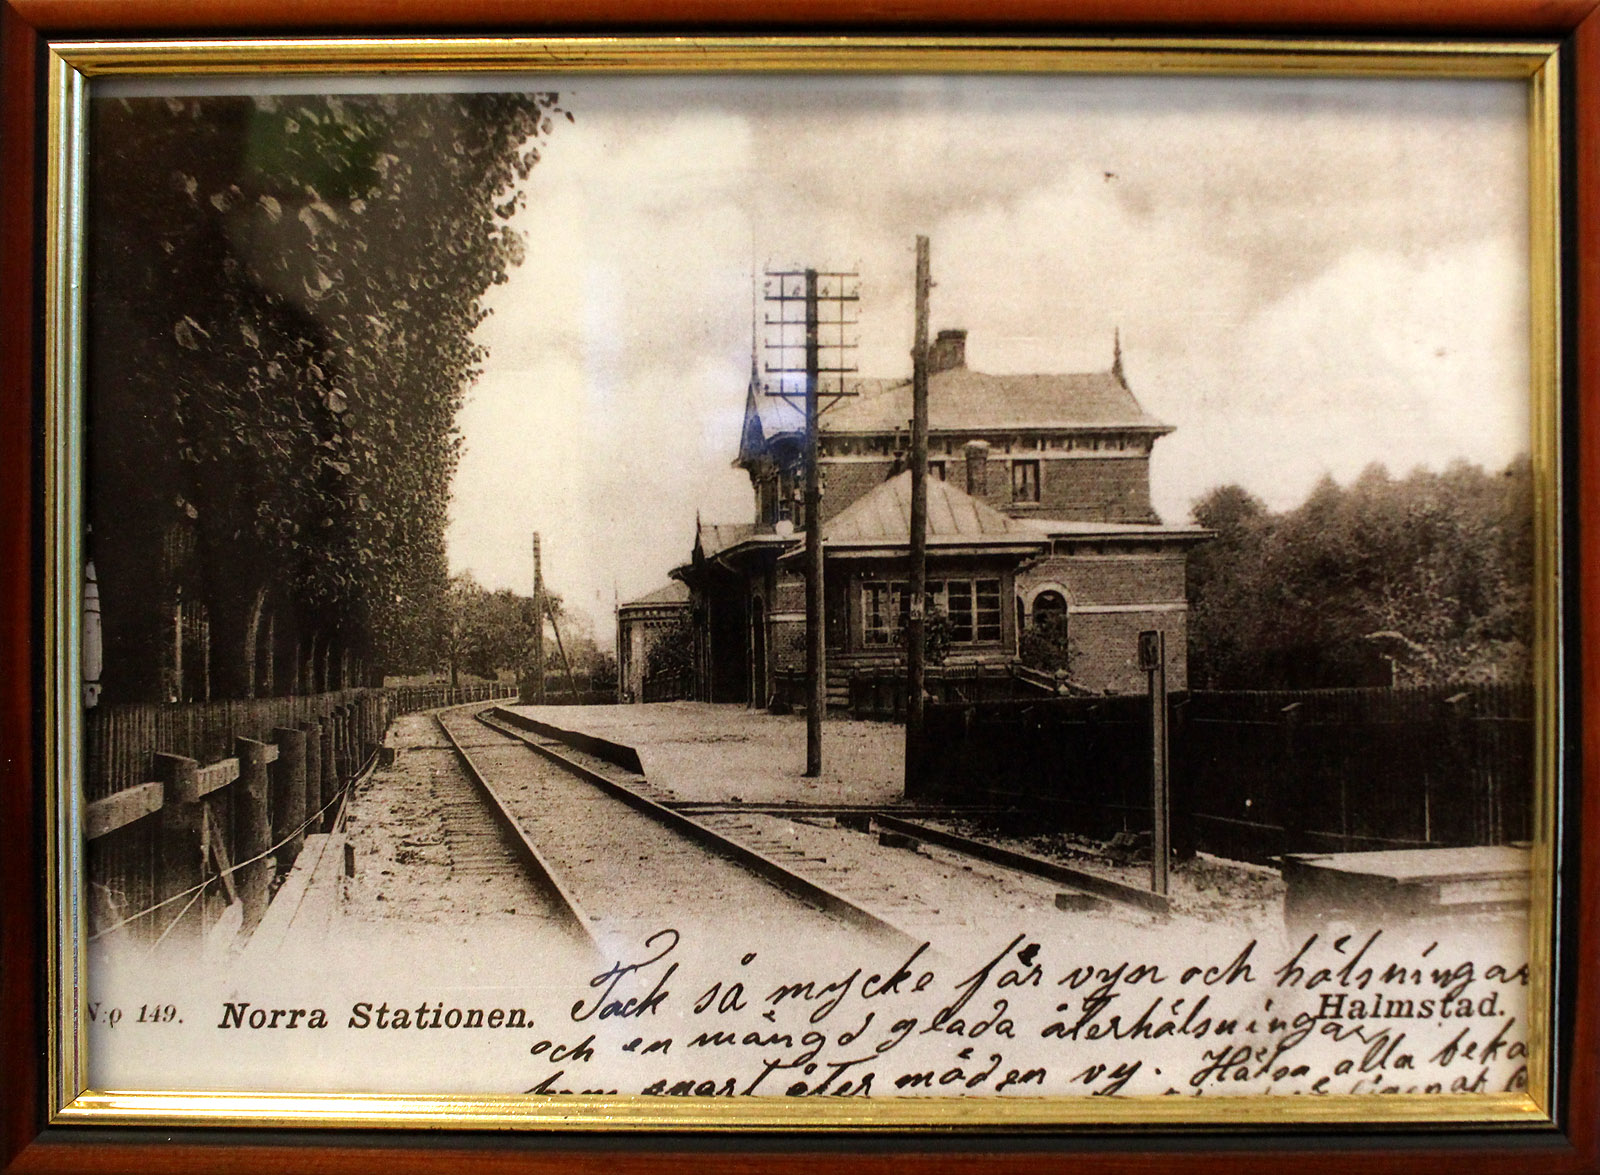 N:o 149. Norra Stationen. Halmstad.
Tack så mycke för vyn och hälsningar
och en mängd glada återhälsningar
kom snart åter med en vy. Hälsa alla beka